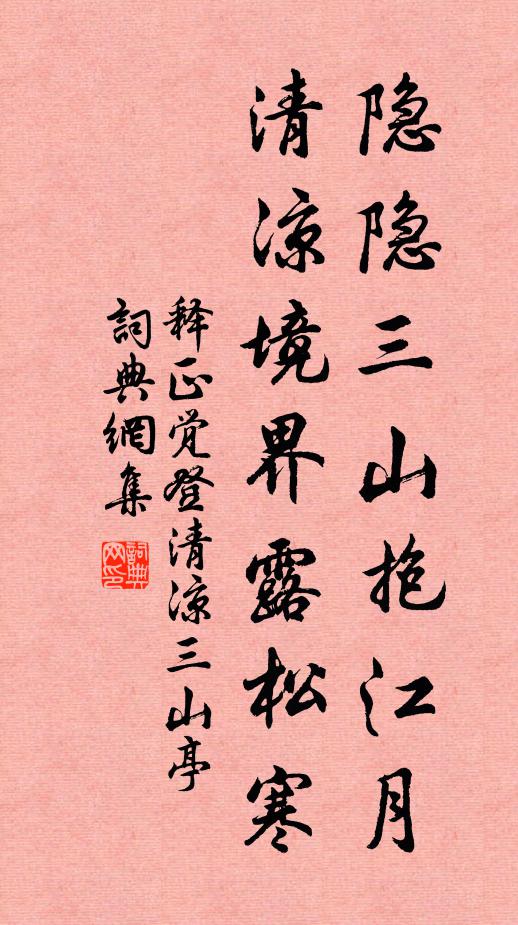 隐隐三山抱江月
清凉境界露松寒
释正觉登清凉三山亭
詞典網集
詞典網印